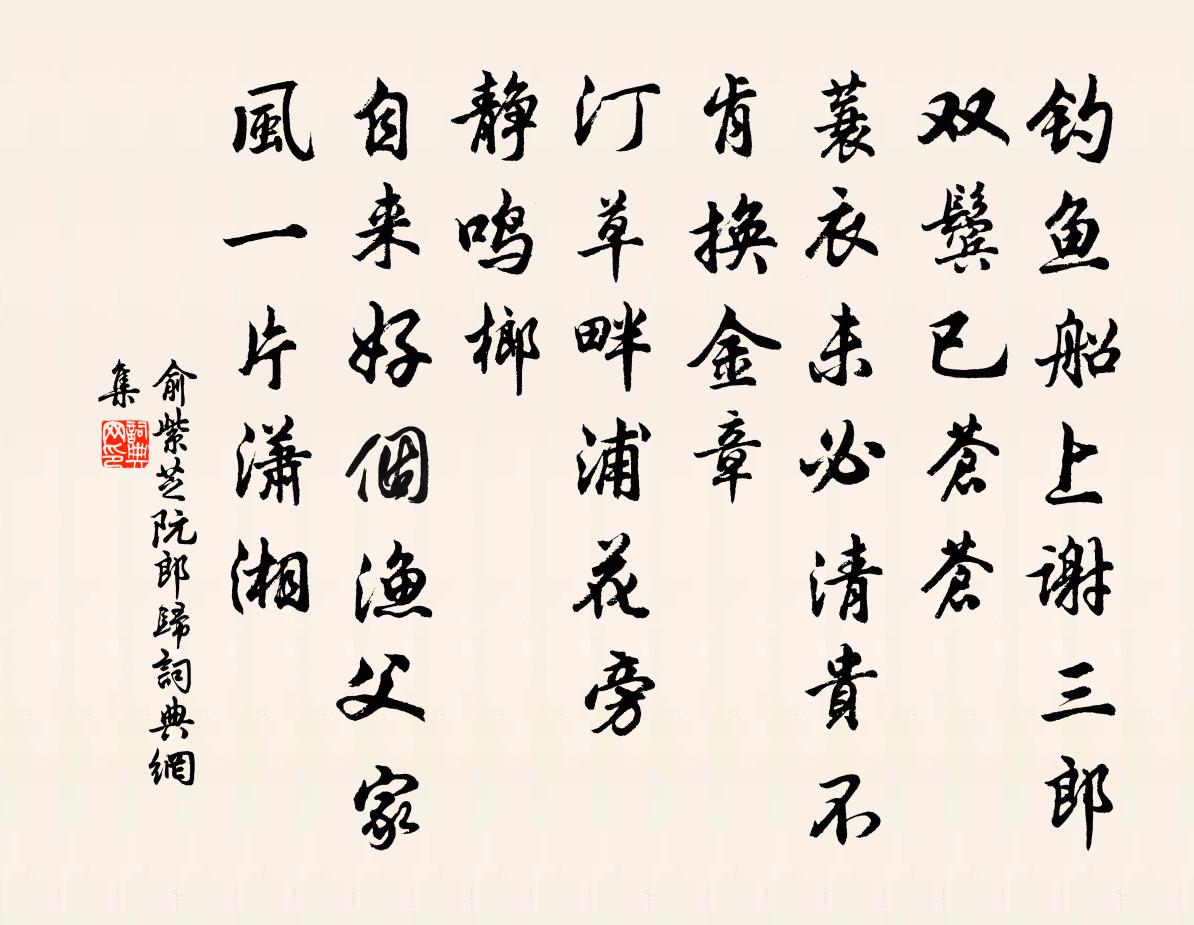 钓鱼船上谢三郎
双鬓已苍苍
蓑衣未必清貴不
肯换金章
汀草畔浦花旁
静鸣榔
自来好個渔父家
風一片潇湘
俞紫芝阮郎歸詞典網
集
詞典网印